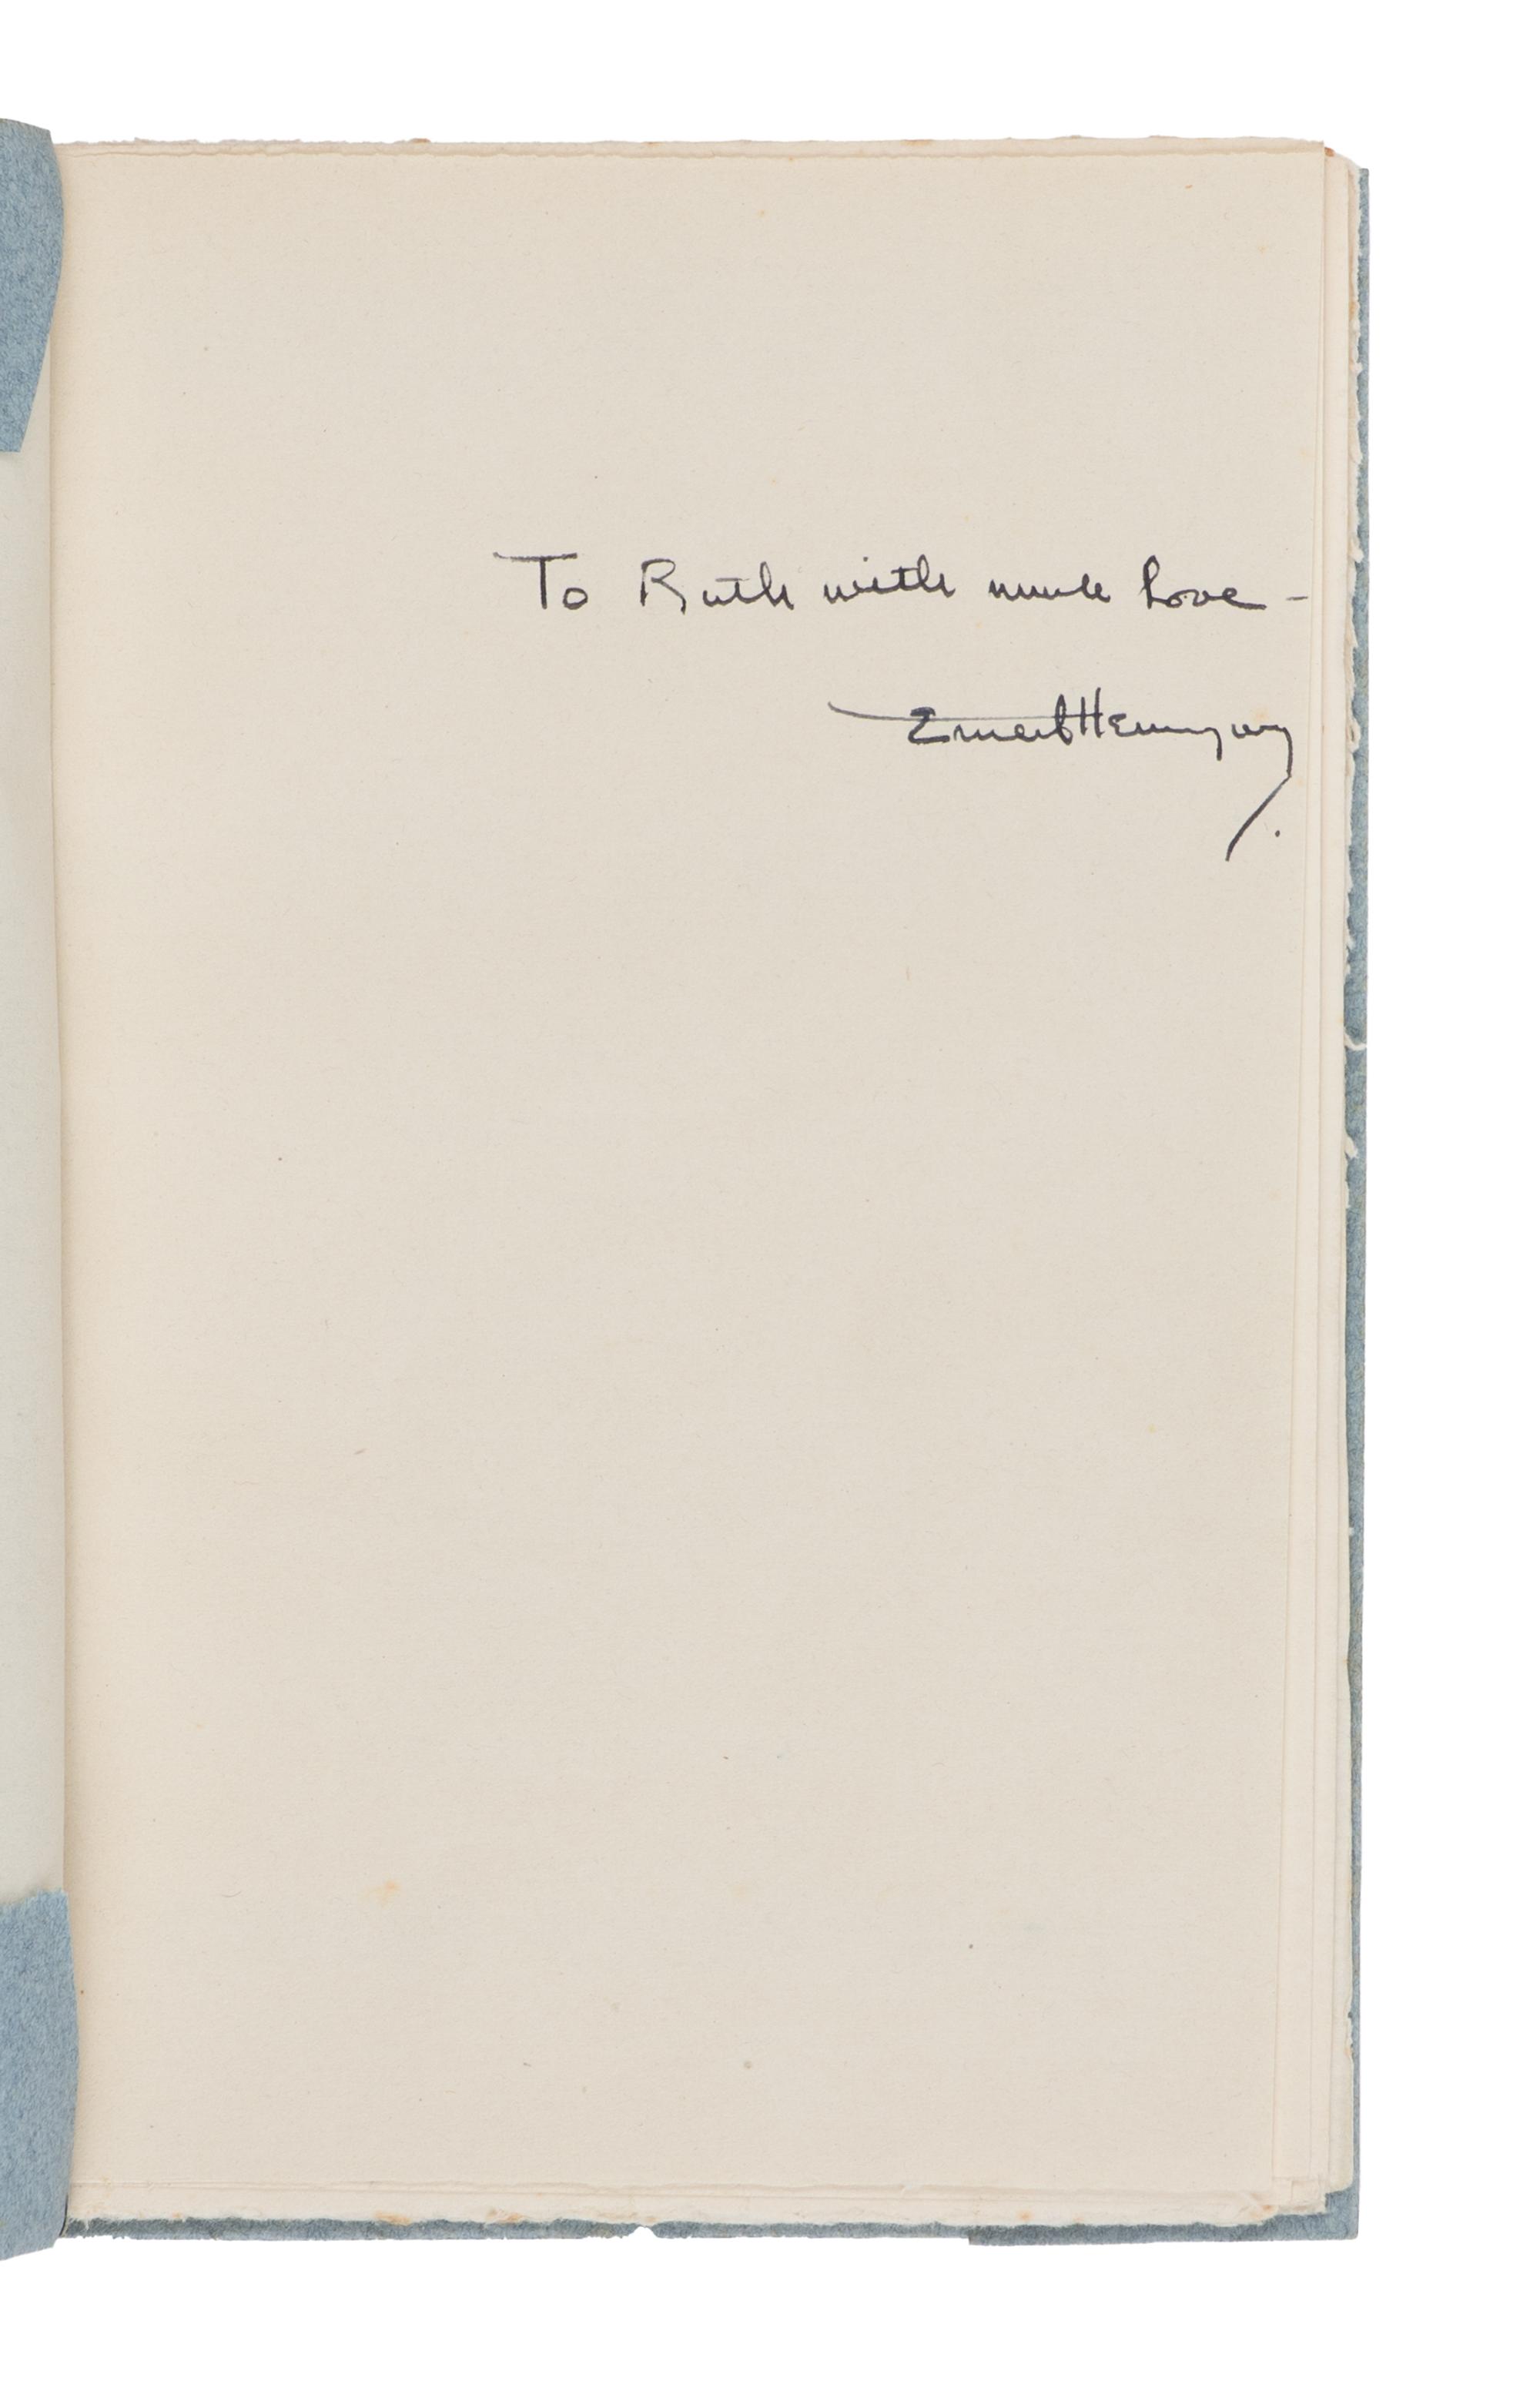 To Ruth with much love -
Ernest Hemingway.